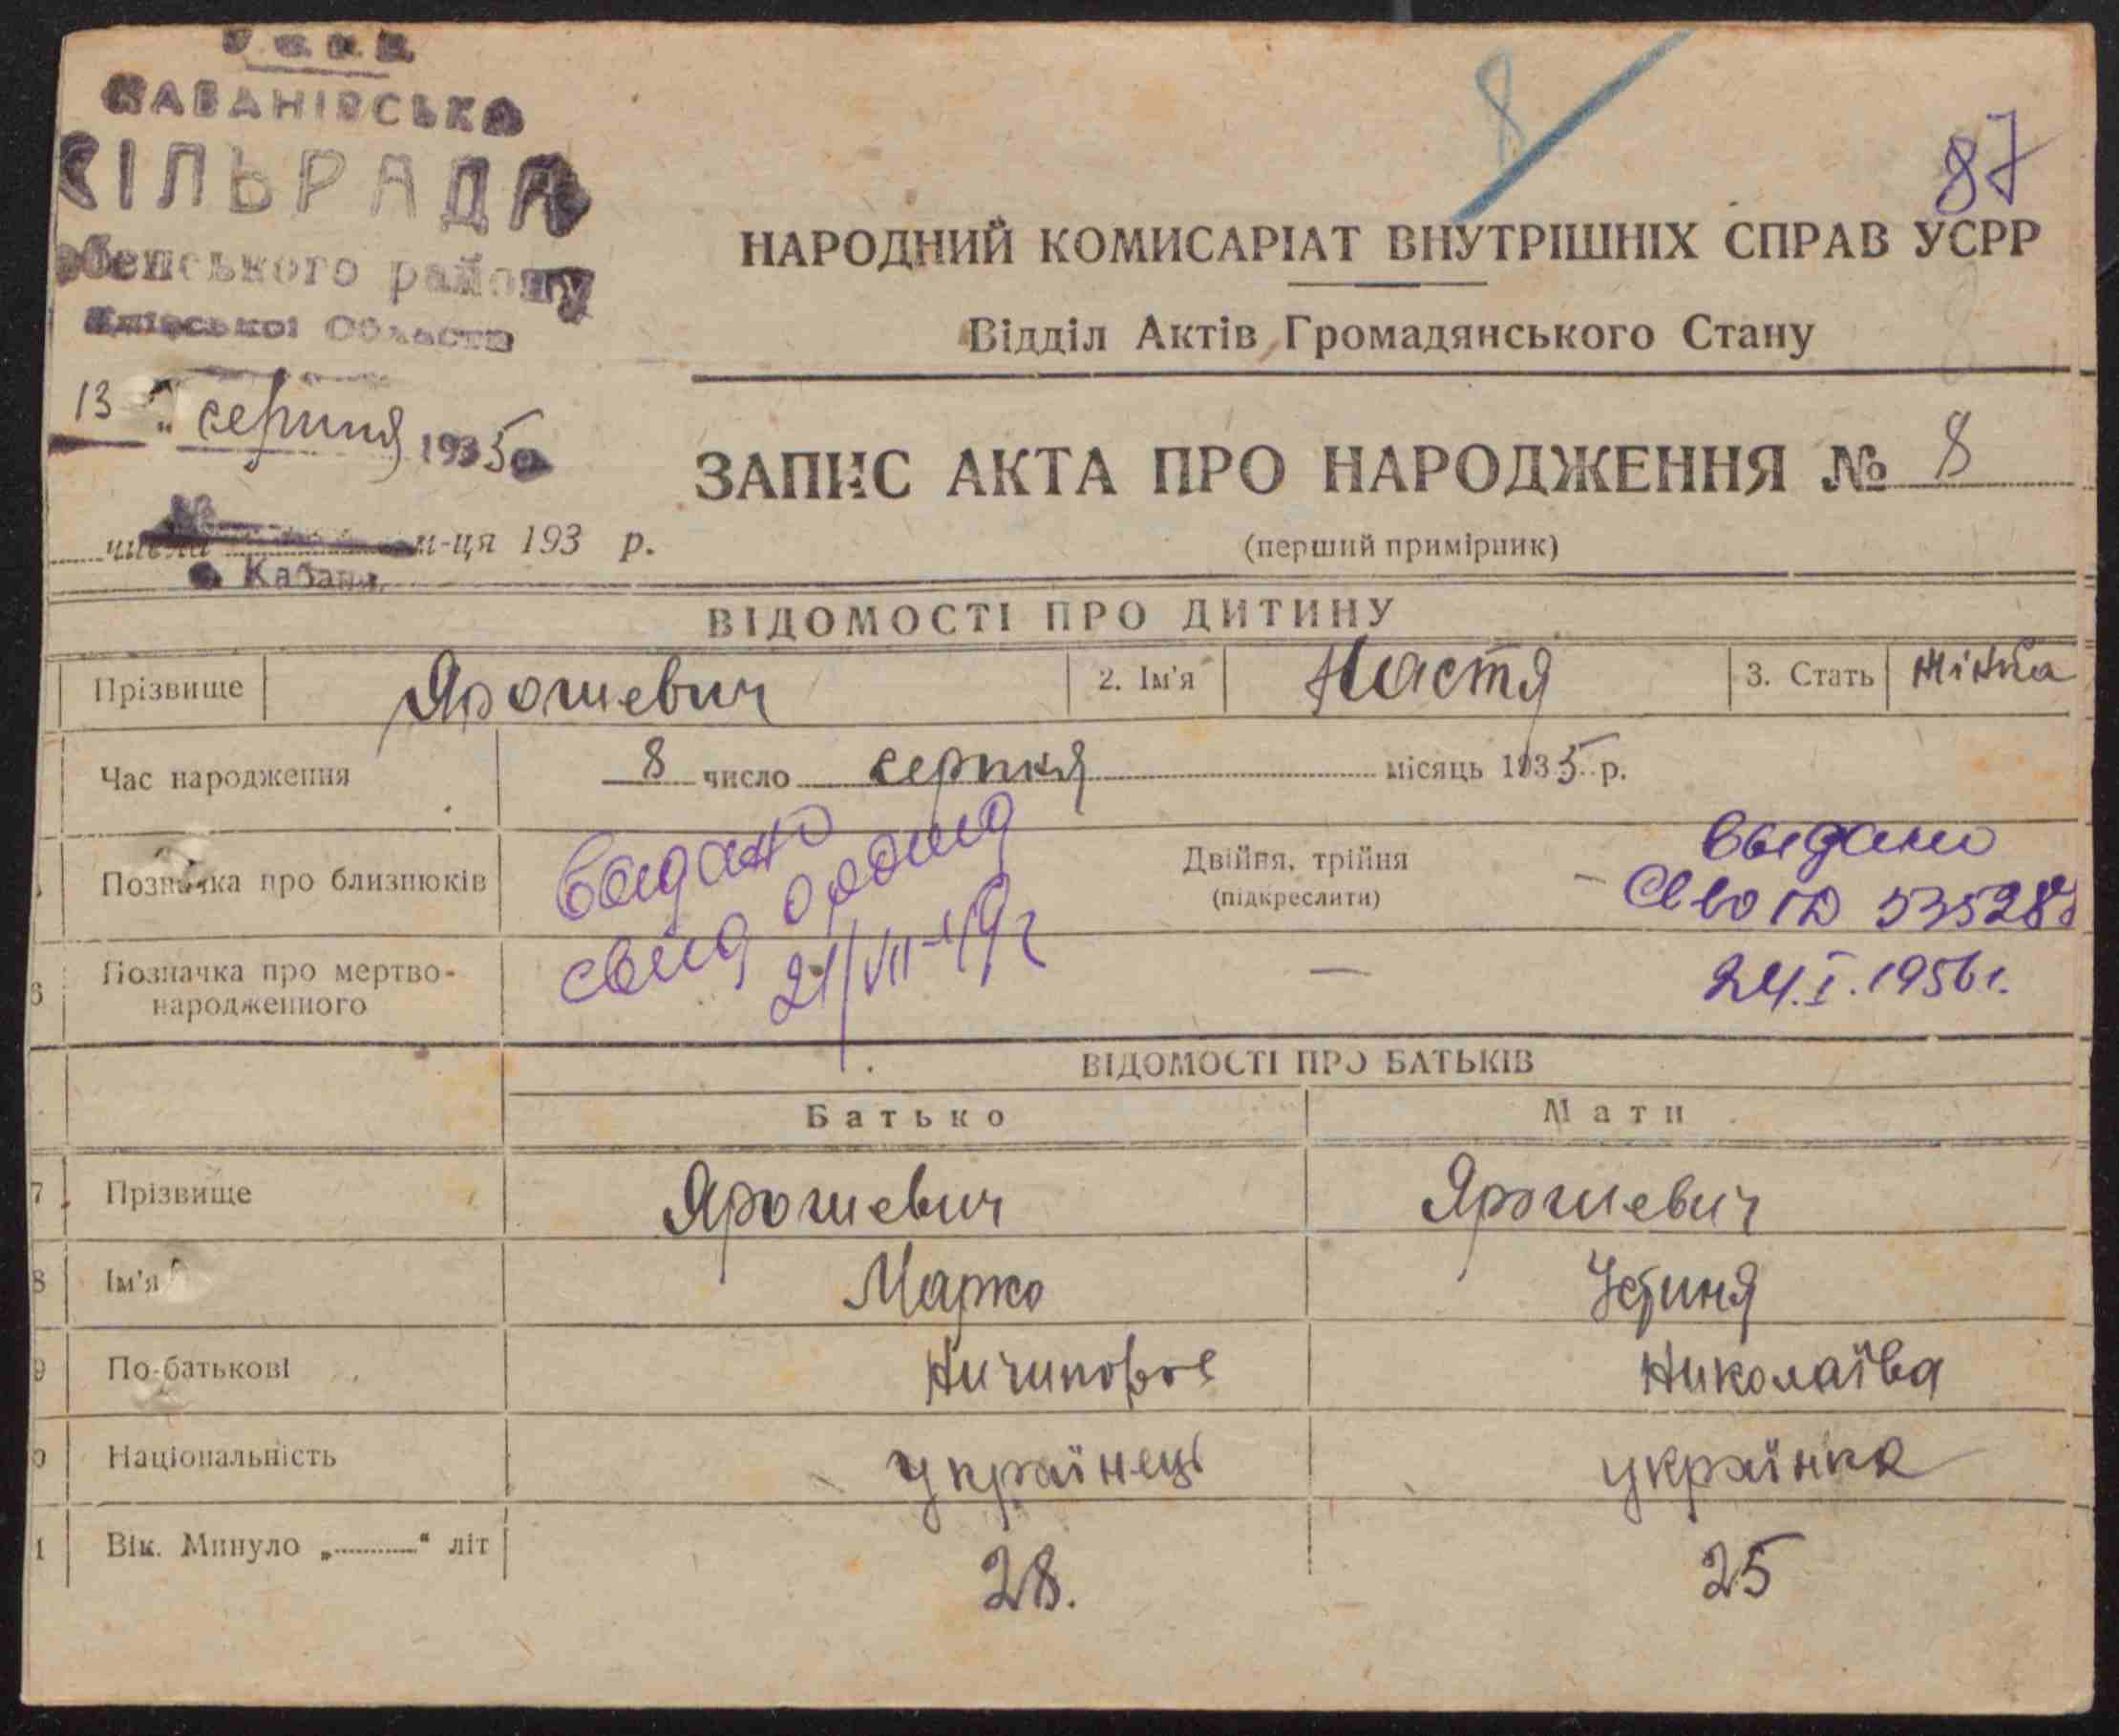 КАБАНІВСЬКА
СІЛЬРАДА
бенського району
Київської Области
13 серпня 1935
числа м-ця 193 р.
с. Кабани
8
87
НАРОДНИЙ КОМИСАРІАТ ВНУТРІШНІХ СПРАВ УСРР
Відділ Актів Громадянського Стану
ЗАПИС АКТА ПРО НАРОДЖЕННЯ № 8
(перший примірник)
ВІДОМОСТІ ПРО ДИТИНУ
Прізвище Ярошевич 2. Ім'я Настя 3. Стать жінка
Час народження 8 число серпня місяць 1935 р.
Позначка про близнюків Двійня, трійня (підкреслити) –
видано
свид
21/VII-49г
выдано
Св-во 535287
24.I.1956г.
6 Позначка про мертвонародженного —
ВІДОМОСТІ ПРО БАТЬКІВ
Батько Мати
7 Прізвище Ярошевич Ярошевич
8 Ім'я Марко Устиня
9 По-батькові Ничипоров Николаїва
0 Національність українець українка
1 Вік. Минуло „ “ літ 28. 25